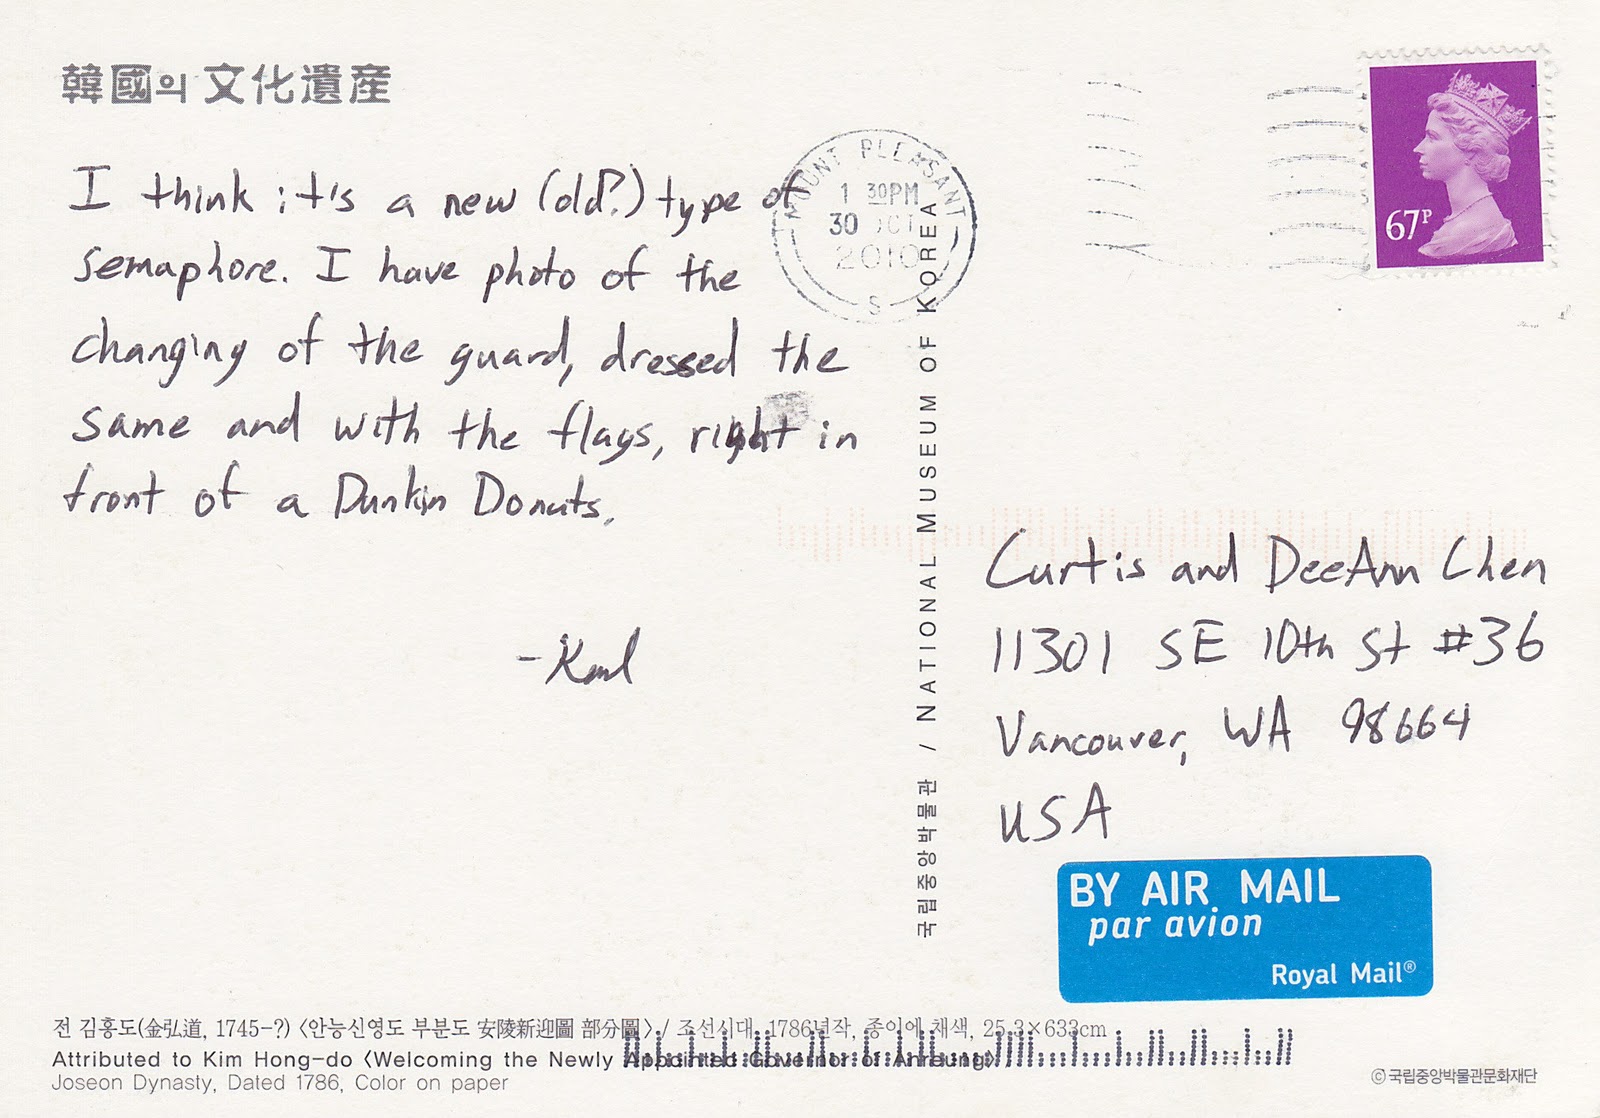 韓國의 文化遺産
I think it's a new (old?) type of
semaphore. I have photo of the
changing of the guard, dressed the
same and with the flags, right in
front of a Dunkin Donuts.
-Karl
MOUNT PLEASANT
1 30PM
30 OCT
2010
S
67P
국립중앙박물관 / NATIONAL MUSEUM OF KOREA
Curtis and DeeAnn Chen
11301 SE 10th St #36
Vancouver, WA 98664
USA
BY AIR MAIL
par avion
Royal Mail®
전 김홍도(金弘道, 1745-?) 〈안능신영도 부분도 安陵新迎圖 部分圖〉/ 조선시대, 1786년작, 종이에 채색, 25.3×633cm
Attributed to Kim Hong-do 〈Welcoming the Newly Appointed Governor of Anreung〉
Joseon Dynasty, Dated 1786, Color on paper
ⓒ국립중앙박물관문화재단